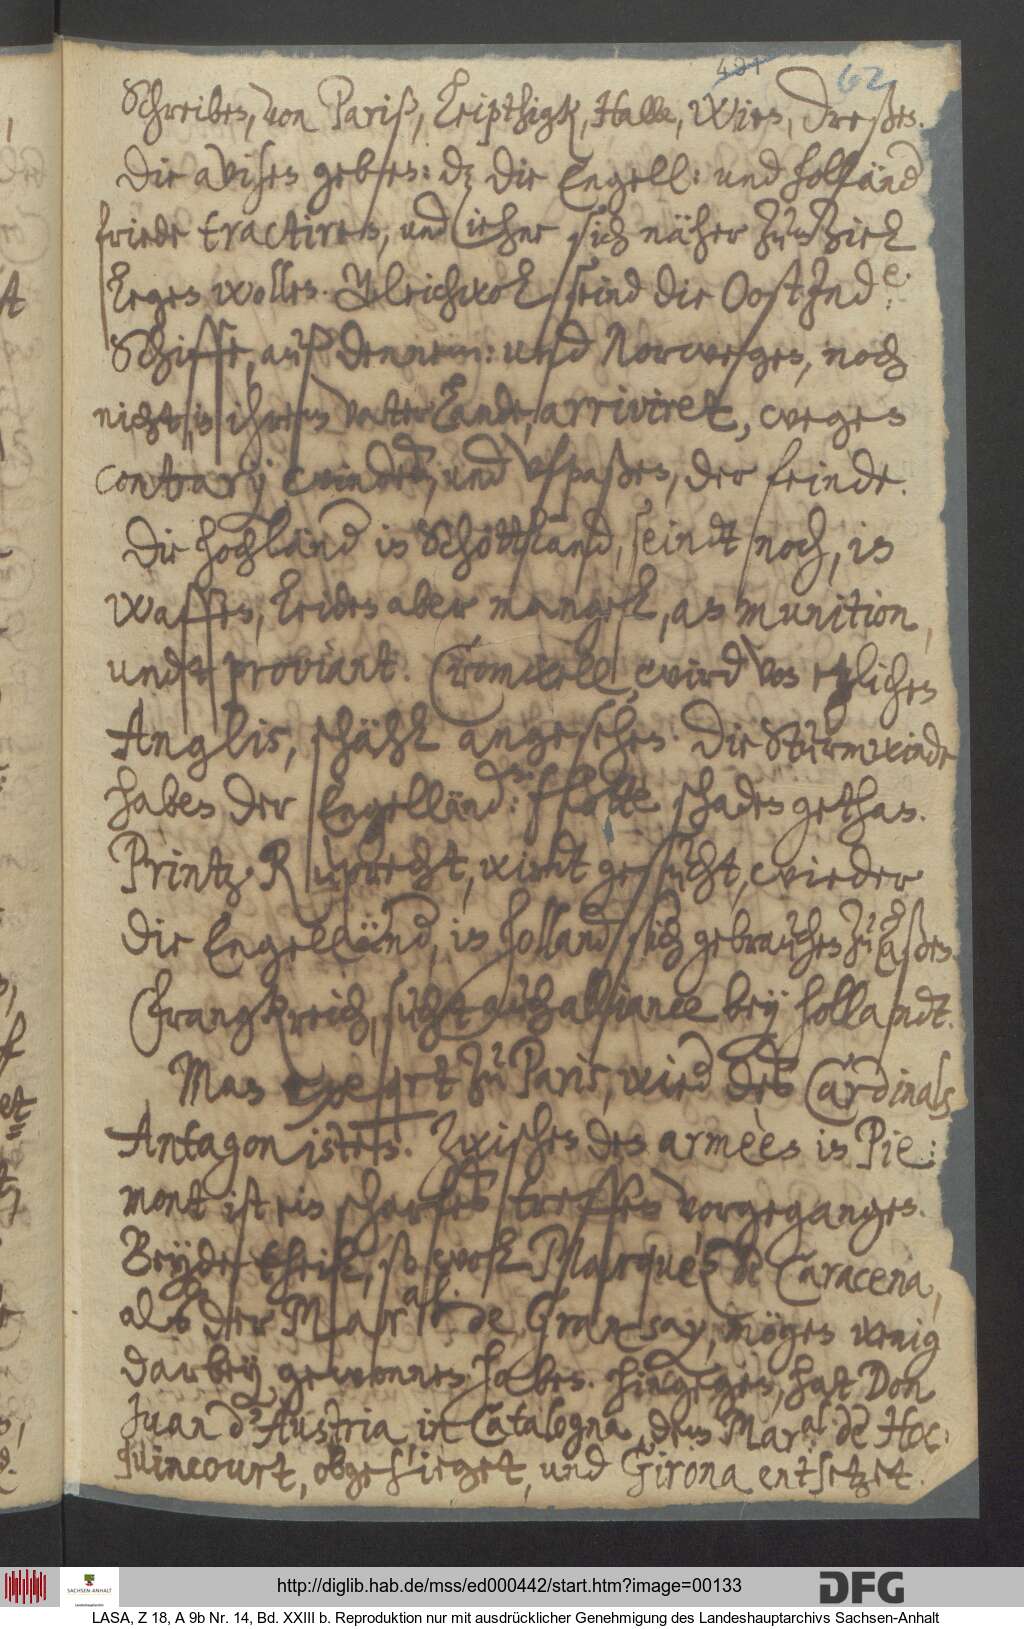 431 62
Schreiben, von Pariß, Leipthigk, Halle, Wien, Dreßen.
Die avisen geben: dz die Engell: und Holländ
friede tractiren, und iehne sich näher zum Ziehl
legen wollen. Gleichwol seind die OostInd.e:
Schiffe, auß Dennem: und Norwegen, noch
nicht, in ihrem Vatterlande, arriviret, wegen
contrary winden, und ufpaßen, der feinde.
Die Hochländ in Schottland, seindt noch, in
Waffen, leiden aber mangell, an munition,
undt proviant. Cromwell, wird von etzlichen
Anglis, schähl angesehen. Die Sturmwinde
haben der Engelländ:den flotte schaden gethan.
Printz Ruprecht, wirdt gesucht, wieder
die Engelländ, in Holland sich gebrauchen zu laßen.
Frangkreich, sucht auch alliance bey Hollandt.
Man exequirt zu Paris, wied des Cardinals
Antagonisten. Zwischen den armèen in Pie:
mont ist ein scharfes treffen vorgegangen.
Beyde theil, so wol Marquès de Caracena,
alß der Maral: de Gransay, mögen wenig
darbey gewonnen haben. Hingegen, hat Don
Juan d'Austria in Catalogna, dem Maral: de Hoc:
quincourt, obgesieget, und Girona entsetzet.
http://diglib.hab.de/mss/ed000442/start.htm?image=00133
SACHSEN-ANHALT
DFG
LASA, Z 18, A 9b Nr. 14, Bd. XXIII b. Reproduktion nur mit ausdrücklicher Genehmigung des Landeshauptarchivs Sachsen-Anhalt